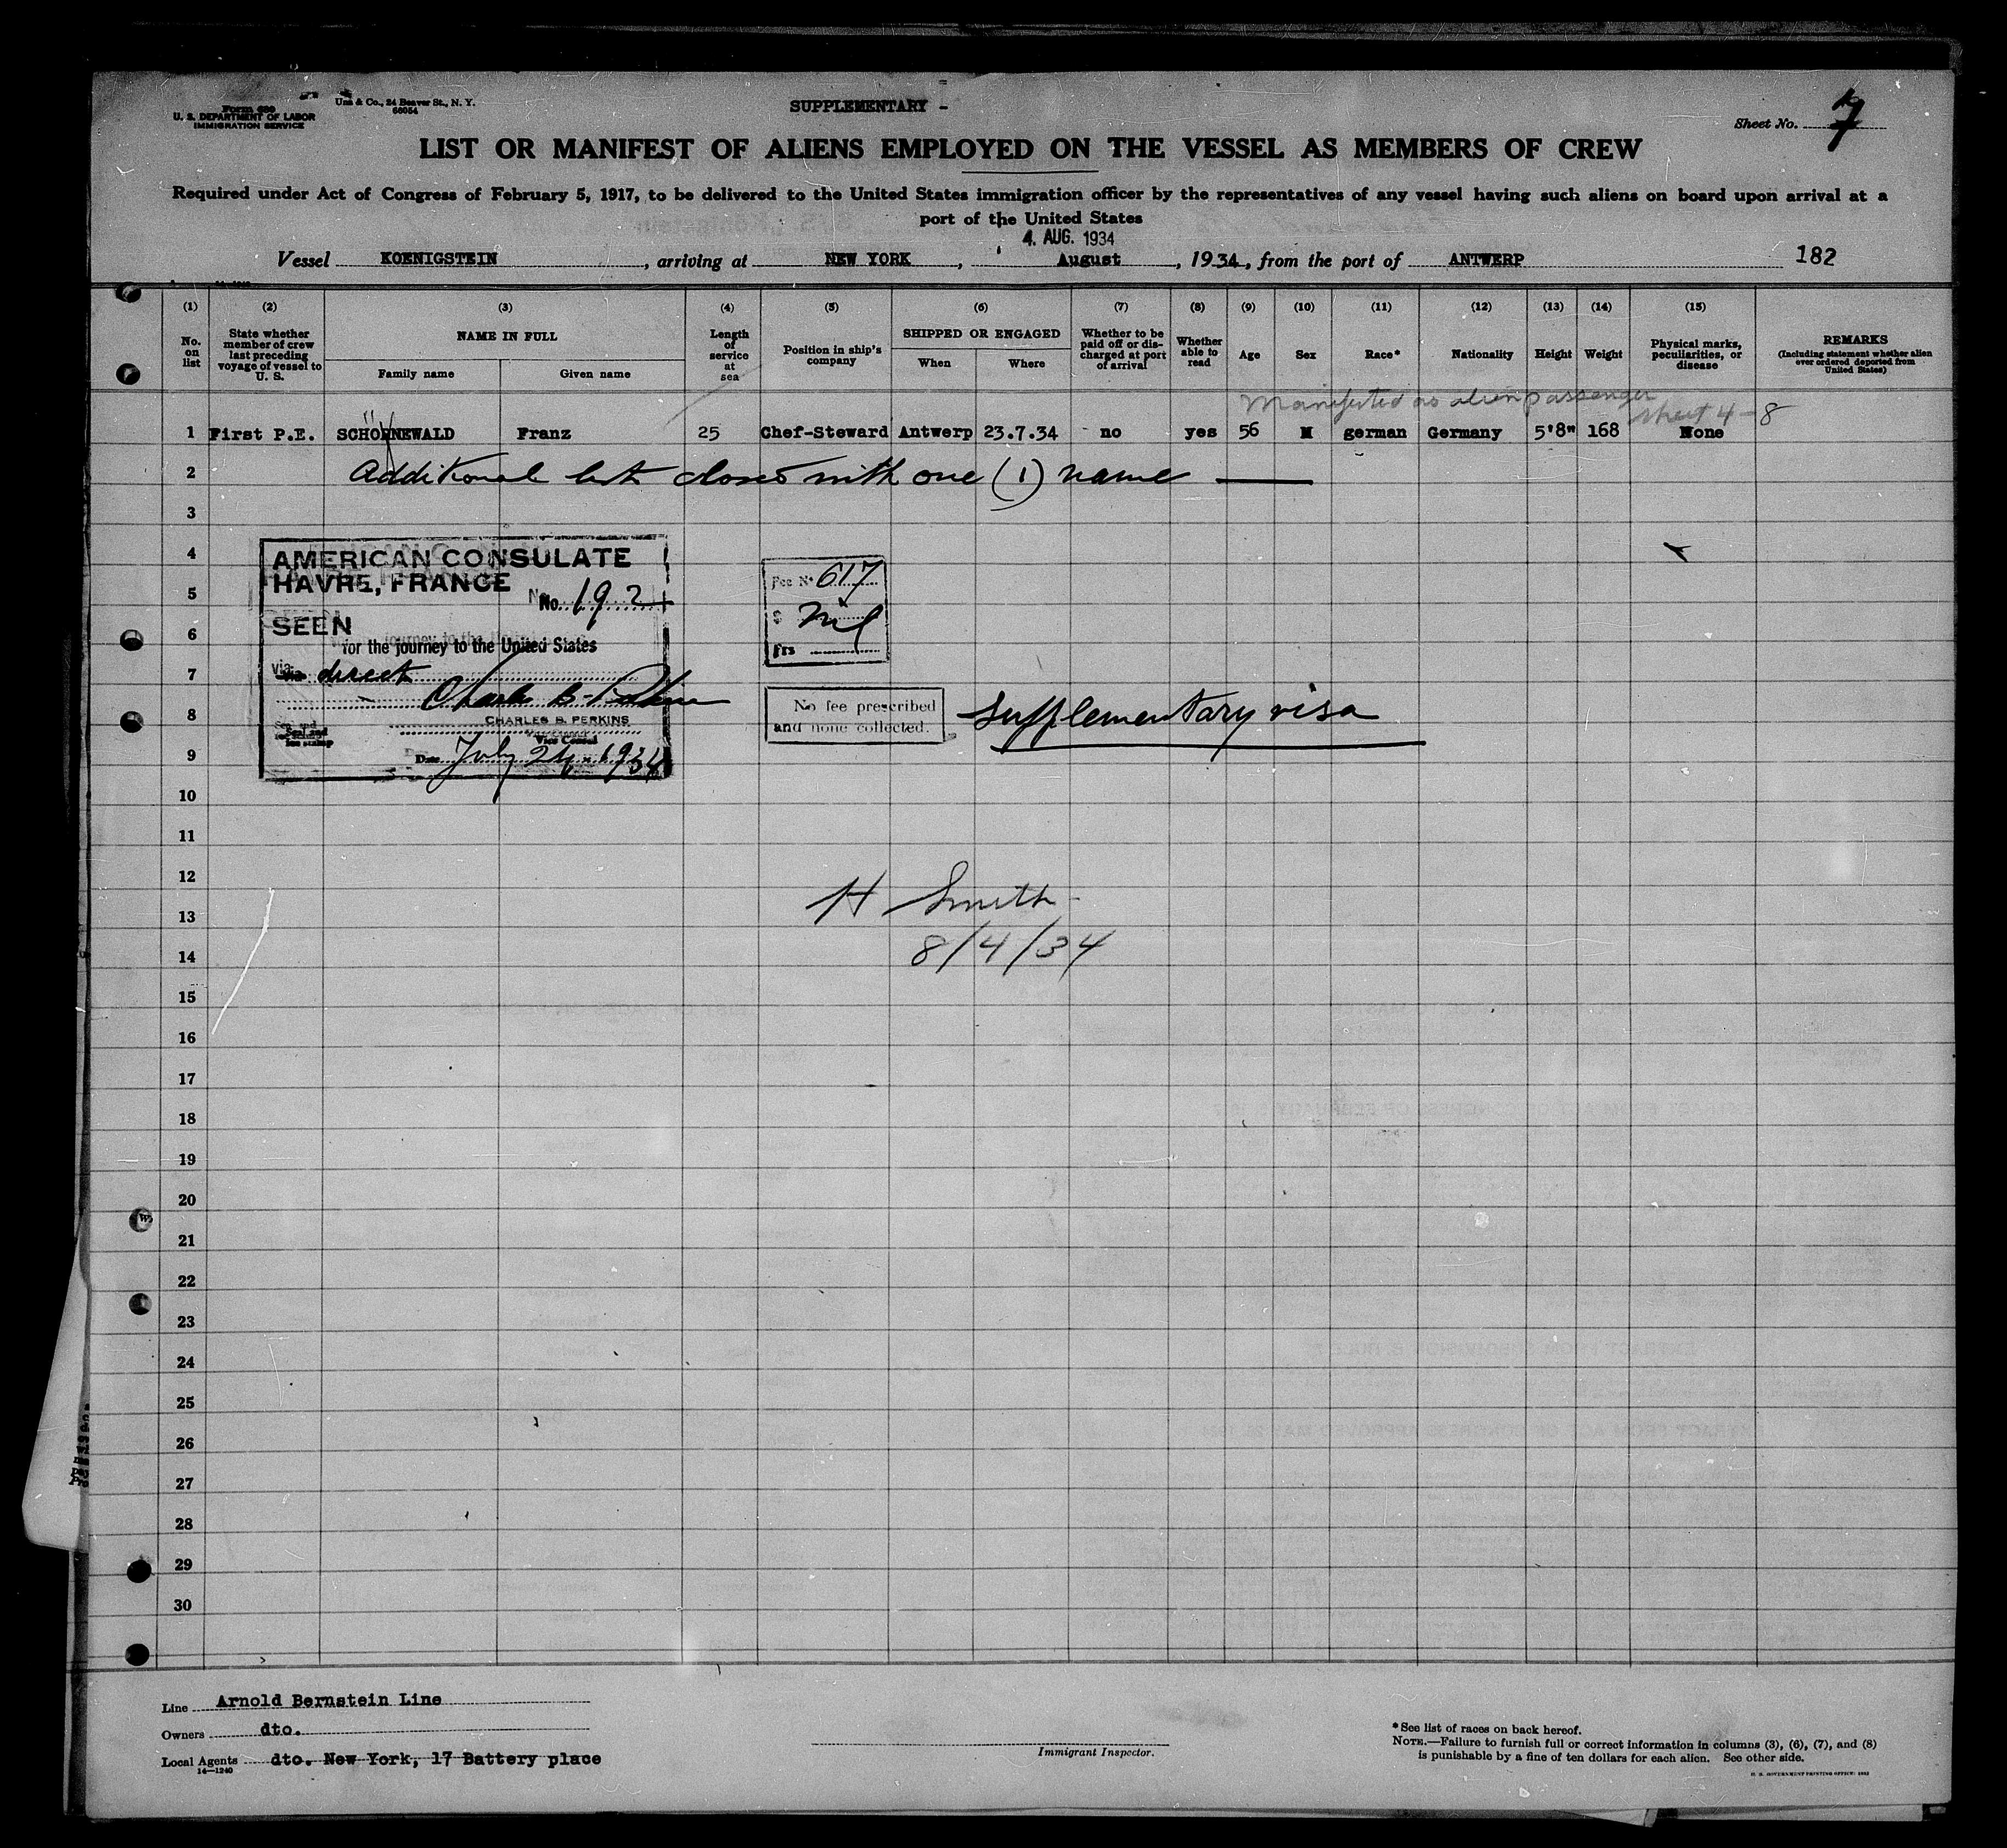 Form 680
U. S. DEPARTMENT OF LABOR
IMMIGRATION SERVICE
Unz & Co., 24 Beaver St., N. Y.
66054
SUPPLEMENTARY -
Sheet No. 7
LIST OR MANIFEST OF ALIENS EMPLOYED ON THE VESSEL AS MEMBERS OF CREW
Required under Act of Congress of February 5, 1917, to be delivered to the United States immigration officer by the representatives of any vessel having such aliens on board upon arrival at a
port of the United States
4. AUG. 1934
Vessel KOENIGSTEIN, arriving at NEW YORK, August, 1934, from the port of ANTWERP 182
(1) (2) (3) (4) (5) (6) (7) (8) (9) (10) (11) (12) (13) (14) (15)
No. on list
State whether member of crew last preceding voyage of vessel to U. S.
NAME IN FULL
Family name Given name
Length of service at sea
Position in ship's company
SHIPPED OR ENGAGED
When Where
Whether to be paid off or discharged at port of arrival
Whether able to read
Age
Sex
Race*
Nationality
Height
Weight
Physical marks, peculiarities, or disease
REMARKS
(Including statement whether alien ever ordered deported from United States)
Manifested as alien passenger
sheet 4-8
1 First P.E. SCHÖRNEWALD Franz 25 Chef-Steward Antwerp 23.7.34 no yes 56 M german Germany 5'8" 168 None
2 Additional list closed with one (1) name
3
4
AMERICAN CONSULATE
HAVRE, FRANCE
No. 192
SEEN
for the journey to the United States
via direct
Charles B. Perkins
CHARLES B. PERKINS
Vice Consul
Seal and
fee stamp
Date July 24, 1934
Fee No 617
$ Nil
frs
No fee prescribed
and none collected.
Supplementary visa
5
6
7
8
9
10
11
12
H Smith
8/4/34
13
14
15
16
17
18
19
20
21
22
23
24
25
26
27
28
29
30
Line Arnold Bernstein Line
Owners dto.
Local Agents dto. New York, 17 Battery place
14—1240
Immigrant Inspector.
*See list of races on back hereof.
NOTE.—Failure to furnish full or correct information in columns (3), (6), (7), and (8)
is punishable by a fine of ten dollars for each alien. See other side.